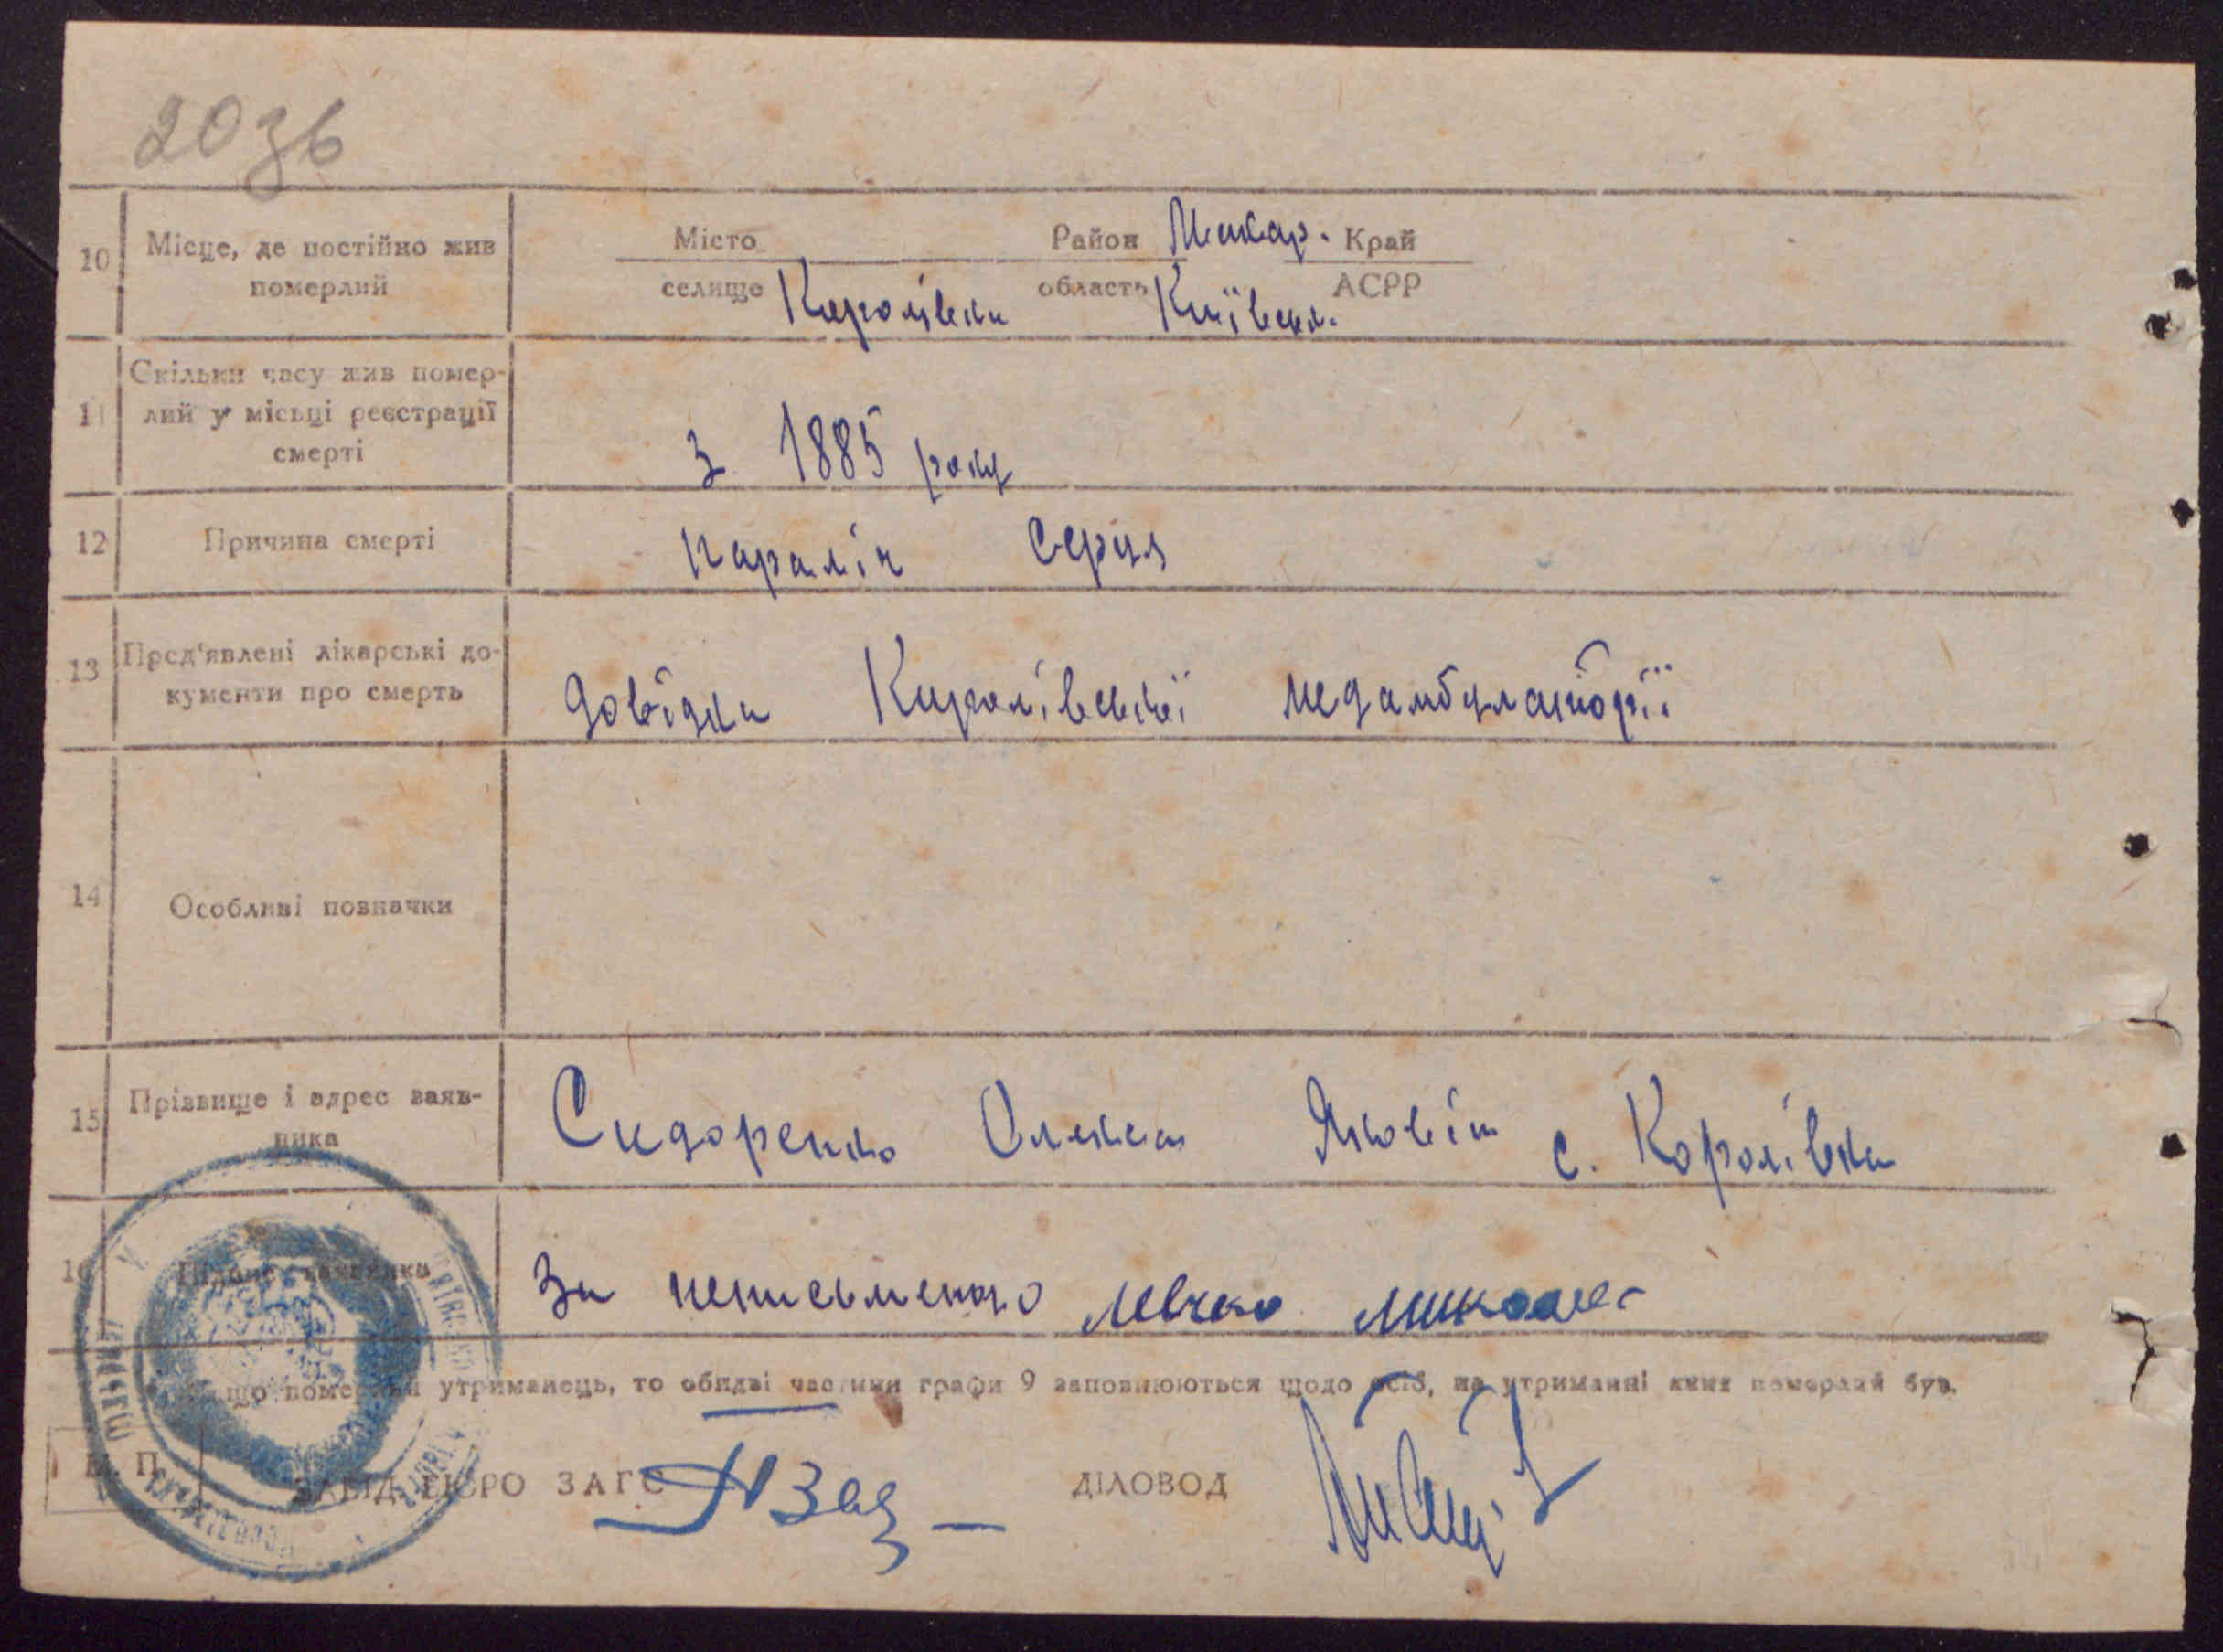 20зв
10 Місце, де постійно жив Місто Район Макар. Край
померлий селище Королівка область Київськ. АСРР
11 Скільки часу жив помер-
лий у місьці реєстрації
смерті З 1885 року
12 Причина смерті параліч серця
13 Пред'явлені лікарські до-
кументи про смерть довідка Королівської медамбулаторії
14 Особливі позначки
15 Прізвище і адрес заяв-
ника Сидоренко Олекса Яковіч с. Королівка
16 Підпис заявника За неписьменого Левчко Микола
що померлий утриманець, то обидві частини графи 9 заповнюються щодо осіб, на утриманні яких померлий був.
М. П. ЗАВІД. БЮРО ЗАГС ДІЛОВОД